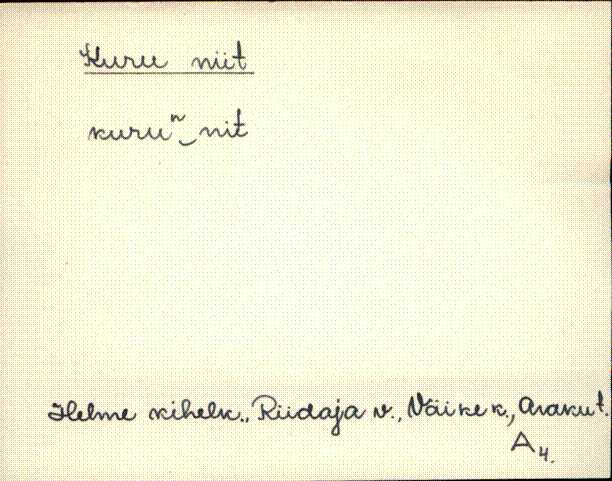 Kuru niit
kuruⁿ‿nit
Helme kihelk., Riidaja v., Väike k., Araku t.
A4.